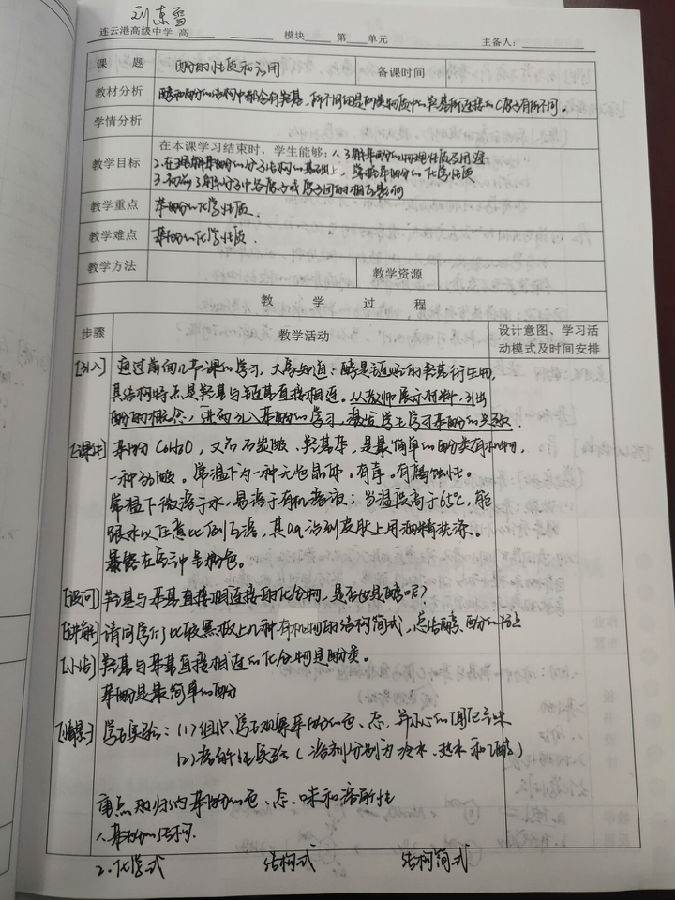 刘东雪
连云港高级中学 高 模块 第 单元 主备人：
课 题 酚的性质和应用 备课时间
教材分析 醇和酚的结构中都含有羟基，所不同的是两类物质中的羟基所连接的C原子有所不同。
学情分析
教学目标 在本课学习结束时，学生能够：1.了解苯酚的物理性质及用途
2.在理解苯酚的分子结构的基础上，掌握苯酚的化学性质
3.初步了解分子中各原子或原子团的相互影响
教学重点 苯酚的化学性质.
教学难点 苯酚的化学性质.
教学方法 教学资源
教 学 过 程
步骤 教学活动 设计意图、学习活
动模式及时间安排
[引入] 通过前面几节课的学习，大家知道：醇是链烃的羟基衍生物，
其结构特点是羟基与链基直接相连。从教师展示材料，引出
酚的概念，进而引入苯酚的学习，激发学生学习苯酚的兴致.
[课件] 苯酚 C6H6O，又名石炭酸、羟基苯，是最简单的酚类有机物，
一种弱酸。常温下为一种无色晶体。有毒。有腐蚀性。
常温下微溶于水，易溶于有机溶液；当温度高于65℃，能
跟水以任意比例互溶，其 溶到皮肤上用酒精洗涤。
暴露在空气中呈粉色。
[设问] 羟基与苯基直接相连接的化合物，是否也是醇呢？
[讲解] 请同学们比较黑板上几种有机物的结构简式，总结醇、酚的
[小结] 羟基与苯基直接相连的化合物是酚类。
苯酚是最简单的酚
[情景] 学生实验：(1)组织学生观察苯酚的色、态，并小心的闻闻气味
(2)溶解性实验（溶剂分别为冷水、热水和乙醇）
重点 归纳苯酚的色、态、味和溶解性
1.苯酚的
2.化学式 结构式 结构简式